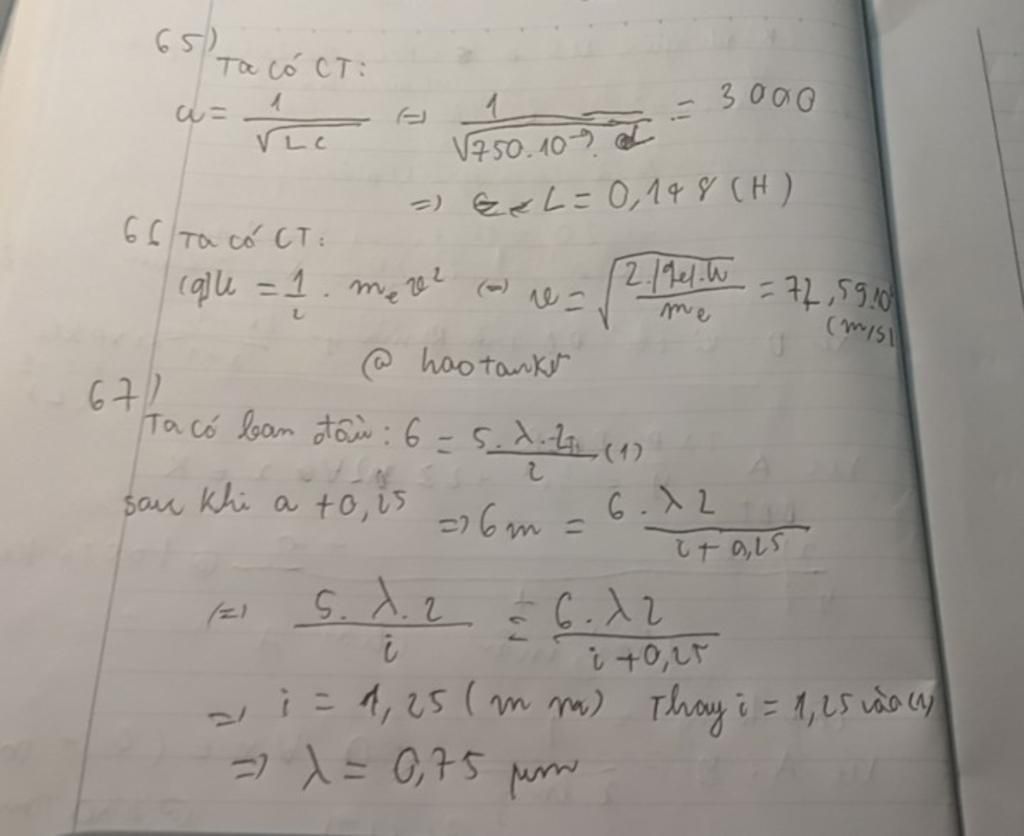 65)
Ta có CT:
a = 1/√LC ⇔ 1/√750.10⁻⁹. L = 3000
⇒ L = 0,148 (H)
66 Ta có CT:
|q|U = 1/2 . mₑv² ⇔ v = √2.|qe|.U/mₑ = 72,59.10 (m/s)
@ haotankr
67)
Ta có ban đầu: 6 = 5.λ.2/i (1)
sau khi a + 0,25 ⇒ 6m = 6.λ2/i + 0,25
⇔ 5.λ.2/i = 6.λ2/i + 0,25
⇒ i = 1,25 (mm) Thay i = 1,25 vào (1)
⇒ λ = 0,75 μm